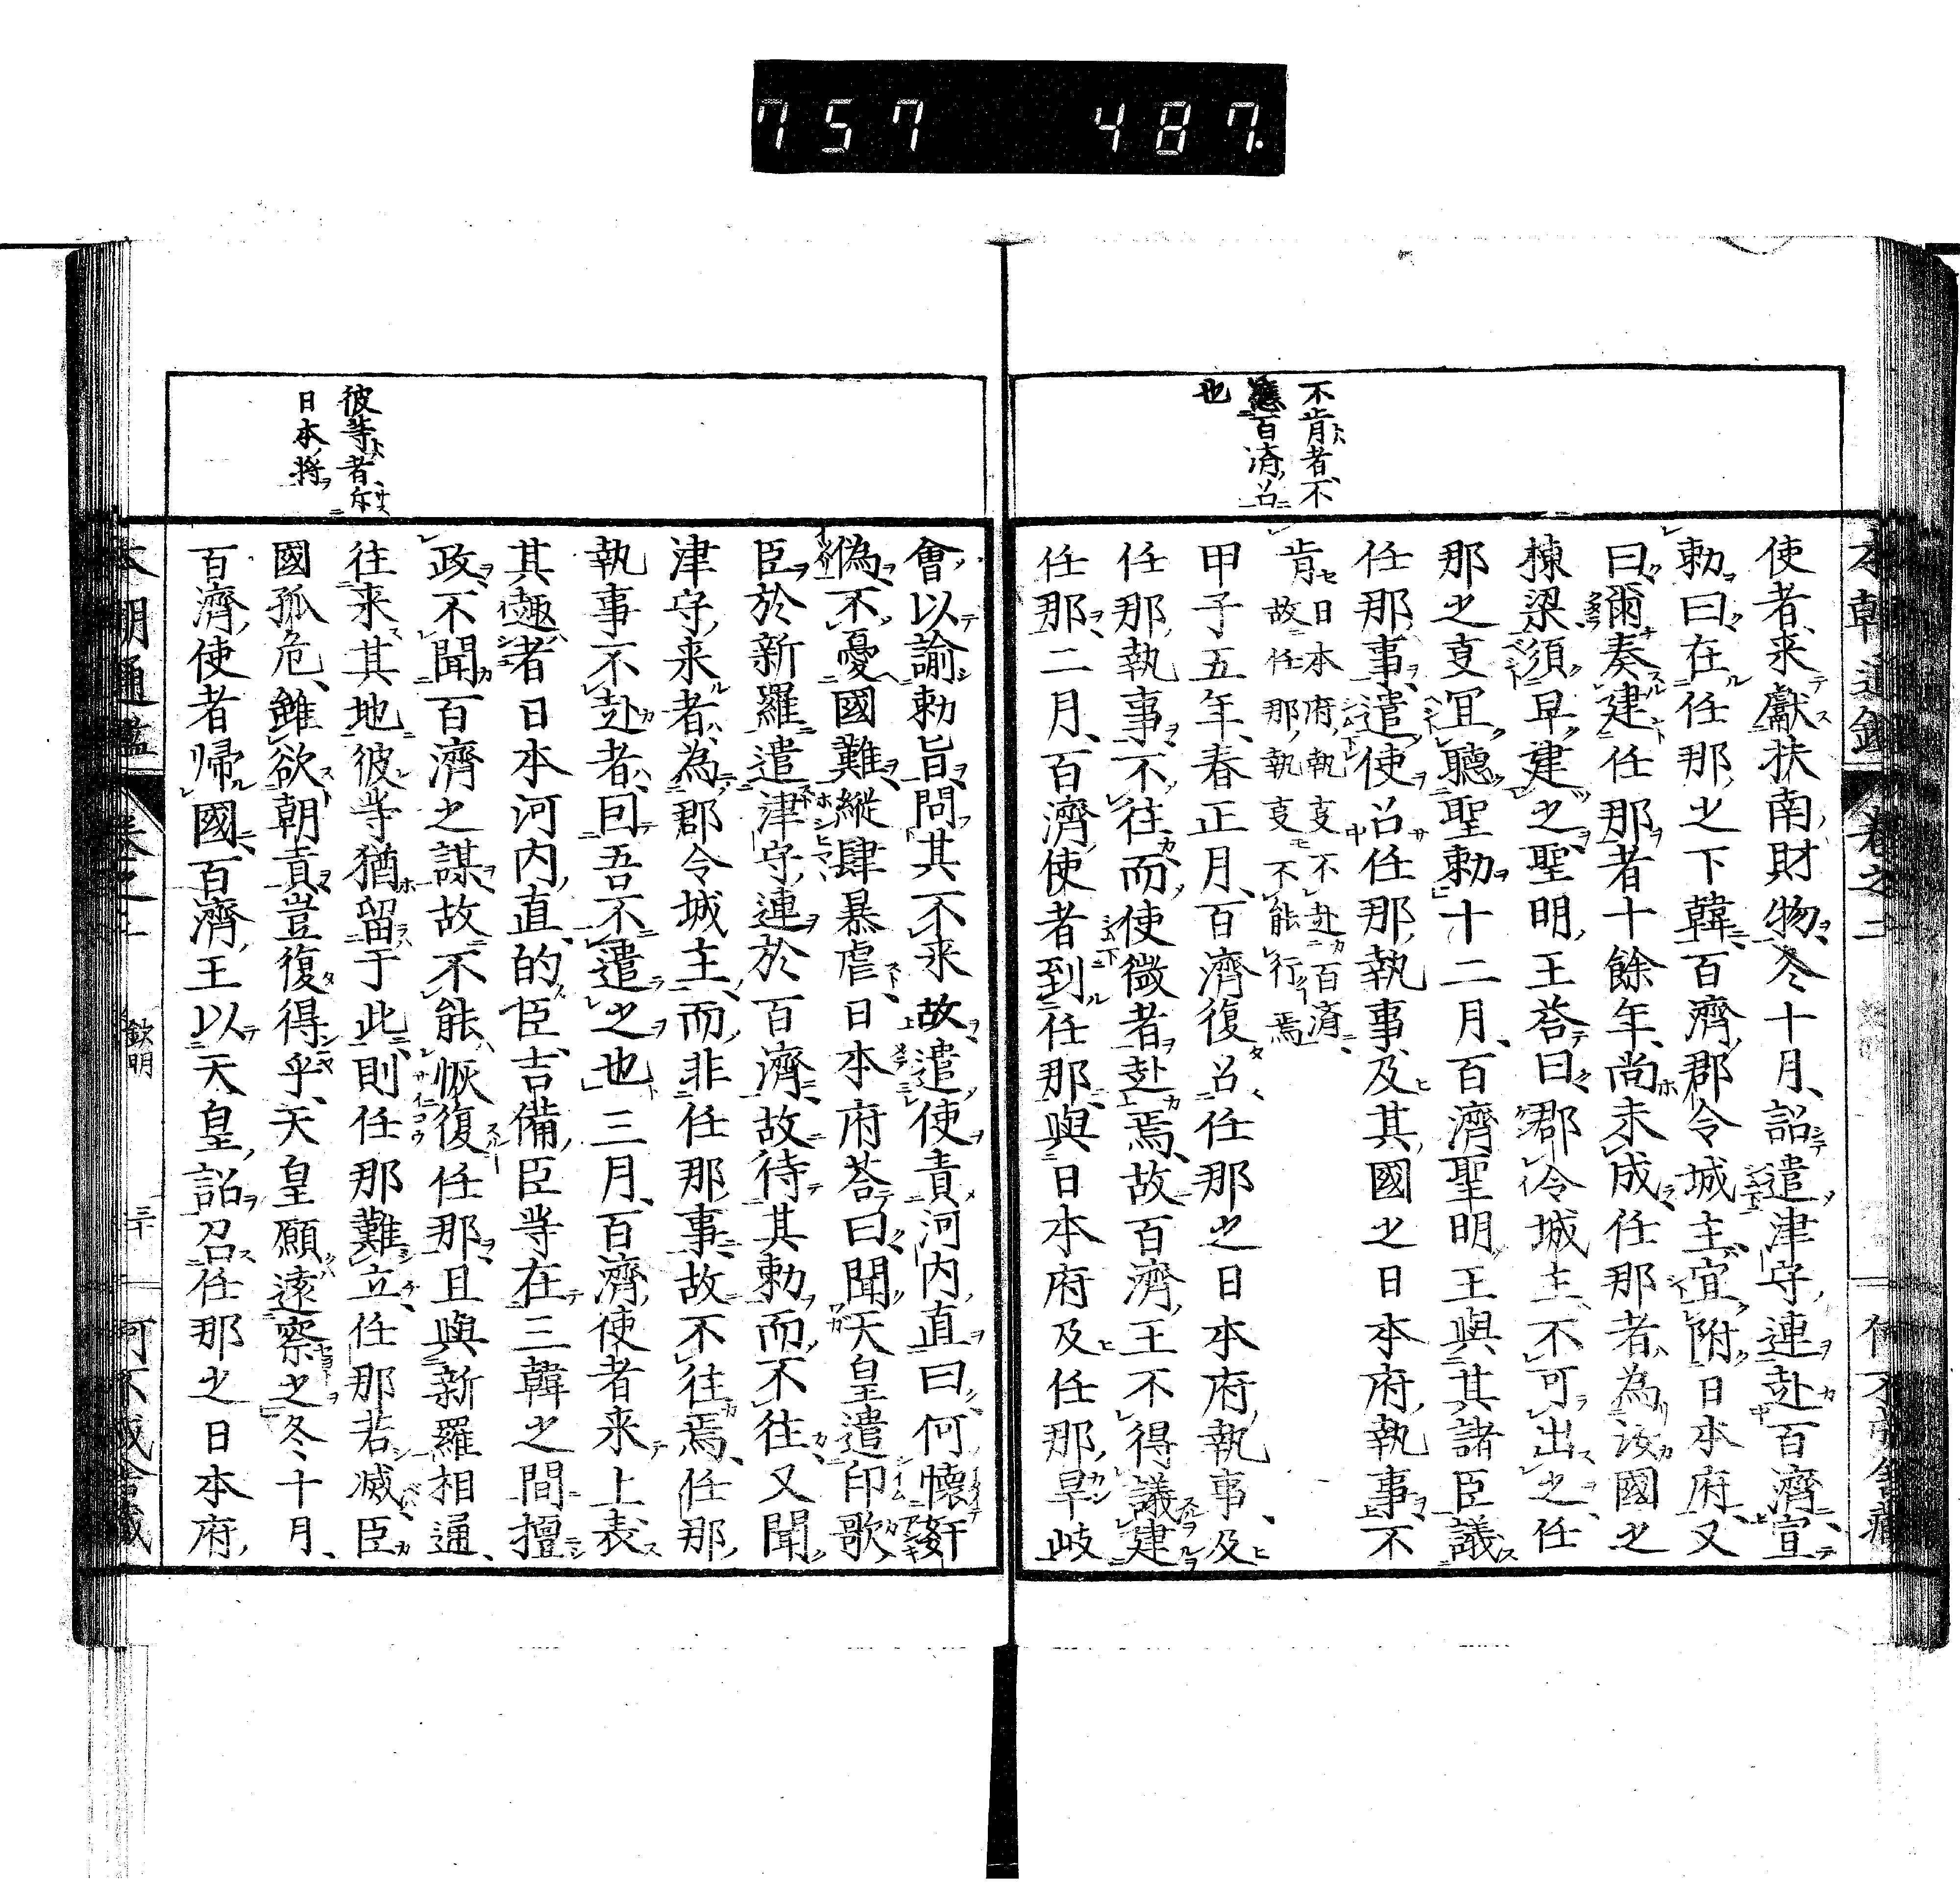 757 487.
不肯者不
應百済召
也
使者来獻扶南財物冬十月詔遣津守連赴百濟宣
勅曰在任那之下韓百濟郡令城主宜附日本府又
曰爾奏建任那者十餘年尚未成任那者為汝國之
棟梁須早建之聖明王荅曰郡令城主不可出之任
那之㕝宜聽聖勅十二月百濟聖明王與其諸臣議
任那事遣使召任那執事及其國之日本府執事不
肯日本府執㕝不赴百済
故任那執㕝不能行焉
甲子五年春正月百濟復召任那之日本府執事及
任那執事不往而使微者赴焉故百濟王不得議建
任那二月百濟使者到任那與日本府及任那早岐
彼等者斥
日本將
會以諭勅旨問其不来故遣使責河内直曰何懐奸
偽不憂國難縱肆暴虐日本府荅曰聞天皇遣印歌
臣於新羅遣津守連於百濟故待其勅而不往又聞
津守来者為郡令城主而非任那事故不往焉任那
執事不赴者囙吾不遣之也三月百濟使者来上表
其趣者日本河内直的臣吉備臣等在三韓之間擅
政不聞百濟之謀故不能恢復任那且與新羅相通
往来其地彼等猶留于此則任那難立任那若滅臣
國孤危雖欲朝責豈復得乎天皇願遠察之冬十月
百濟使者帰國百濟王以天皇詔召任那之日本府
本朝通鑑 卷之二 欽明 三十